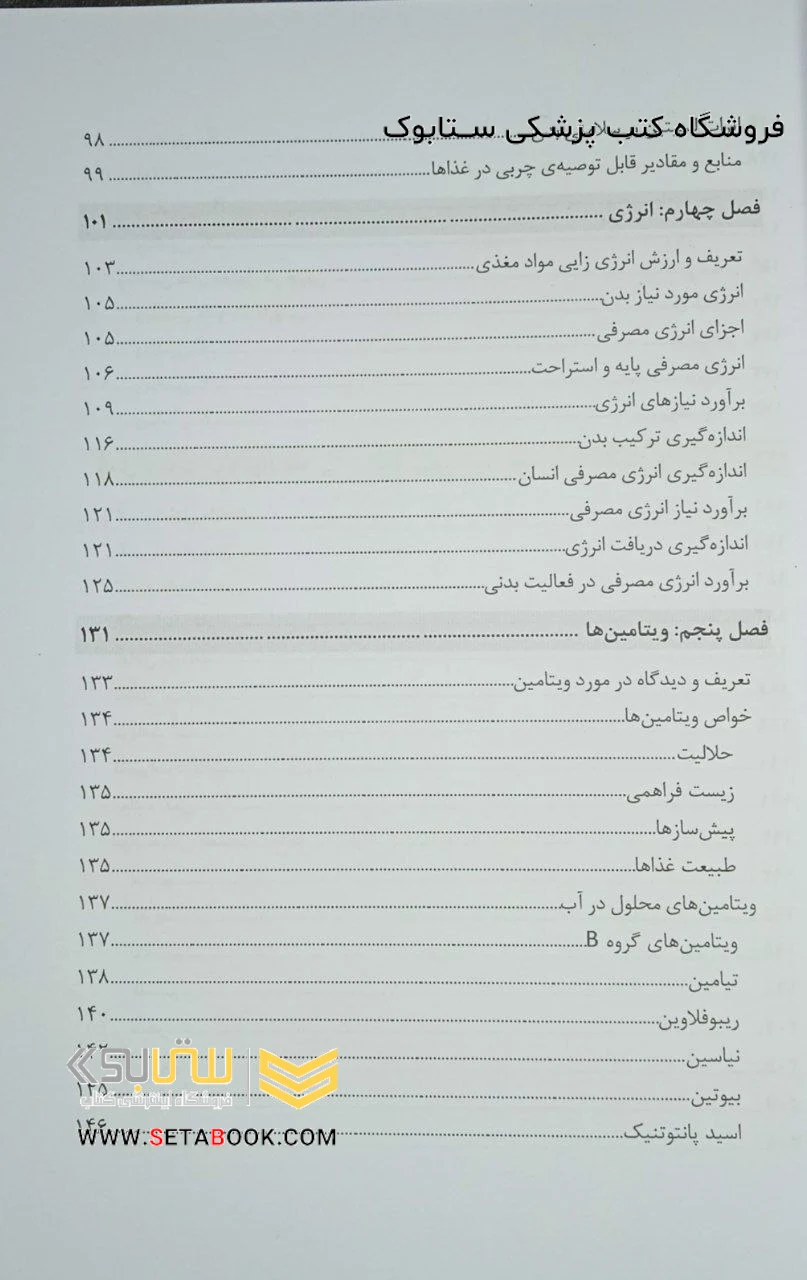 فروشگاه کتب پزشکی ستابوک
۹۸
منابع و مقادیر قابل توصیه‌ی چربی در غذاها ۹۹
فصل چهارم: انرژی ۱۰۱
تعریف و ارزش انرژی زایی مواد مغذی ۱۰۳
انرژی مورد نیاز بدن ۱۰۵
اجزای انرژی مصرفی ۱۰۵
انرژی مصرفی پایه و استراحت ۱۰۶
برآورد نیازهای انرژی ۱۰۹
اندازه‌گیری ترکیب بدن ۱۱۶
اندازه‌گیری انرژی مصرفی انسان ۱۱۸
برآورد نیاز انرژی مصرفی ۱۲۱
اندازه‌گیری دریافت انرژی ۱۲۱
برآورد انرژی مصرفی در فعالیت بدنی ۱۲۵
فصل پنجم: ویتامین‌ها ۱۳۱
تعریف و دیدگاه در مورد ویتامین ۱۳۳
خواص ویتامین‌ها ۱۳۴
حلالیت ۱۳۴
زیست فراهمی ۱۳۵
پیش‌سازها ۱۳۵
طبیعت غذاها ۱۳۵
ویتامین‌های محلول در آب ۱۳۷
ویتامین‌های گروه B ۱۳۷
تیامین ۱۳۸
ریبوفلاوین ۱۴۰
نیاسین ۱۴۲
بیوتین ۱۴۵
اسید پانتوتنیک ۱۴۶
ستابوک
فروشگاه اینترنتی کتاب
WWW.SETABOOK.COM